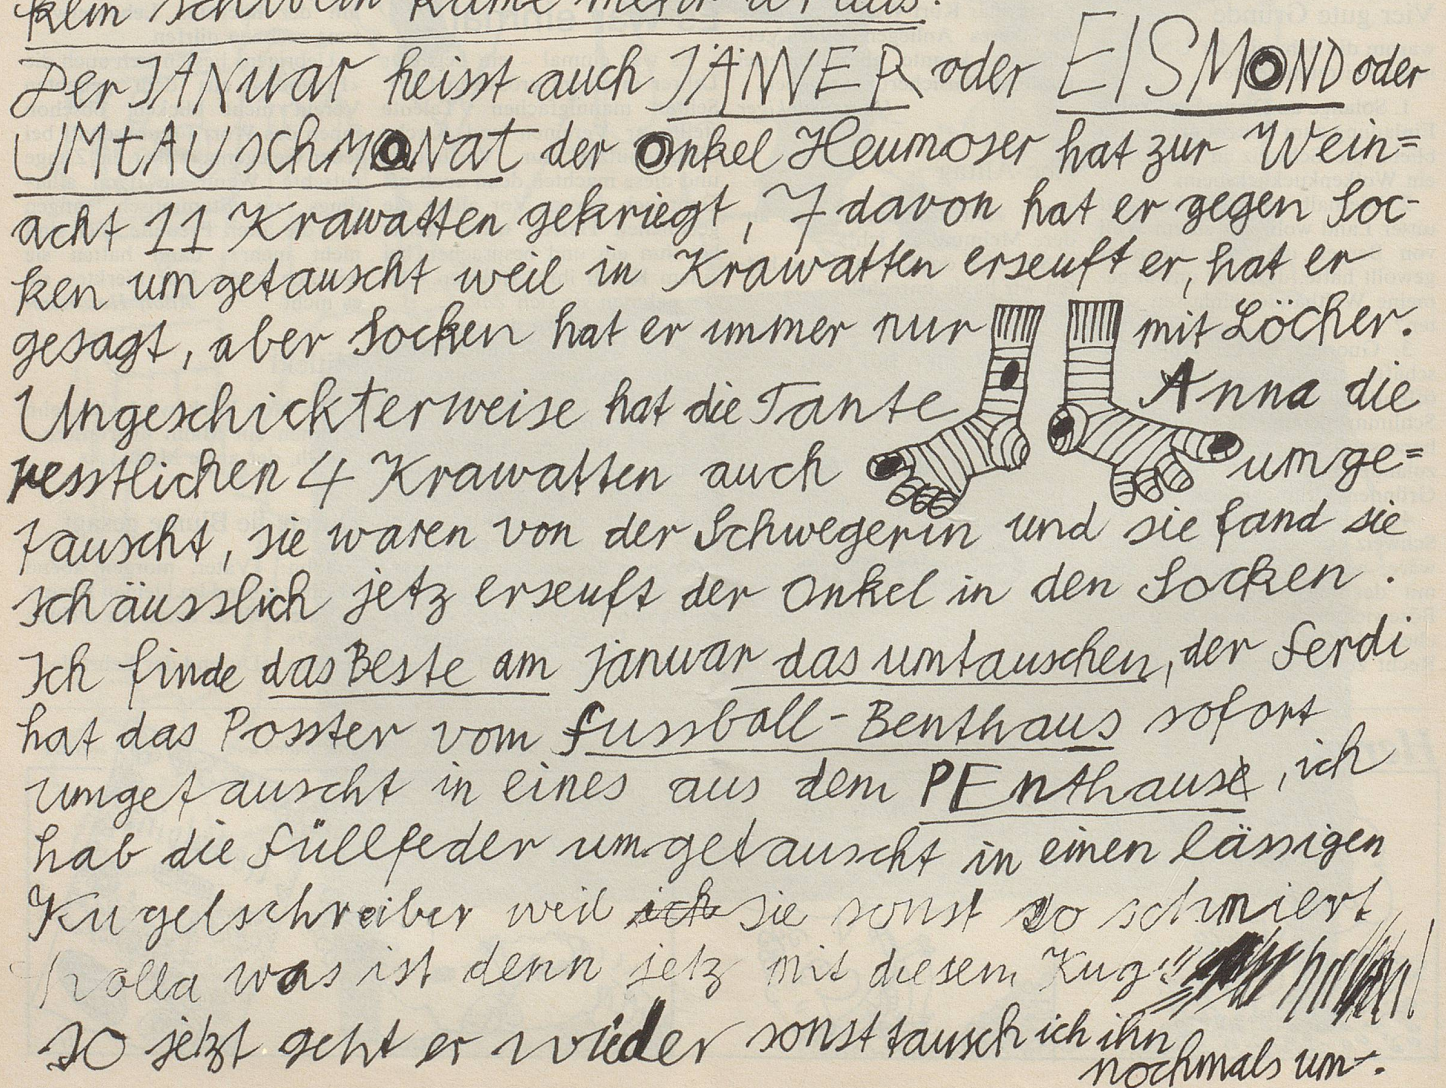 kein schwein käme mehr draus.
Der JANuar heisst auch JÄNNER oder EISMOND oder
UMtAUschMOnat der Onkel Heumoser hat zur Wein=
acht 11 Krawatten gekriegt, 7 davon hat er gegen Soc-
ken umgetauscht weil in Krawatten erseuft er, hat er
gesagt, aber Socken hat er immer nur mit Löcher.
Ungeschickterweise hat die Tante Anna die
resstlichen 4 Krawatten auch umge=
tauscht, sie waren von der Schwegerin und sie fand sie
schäusslich jetz erseuft der Onkel in den Socken.
Ich finde das Beste am Januar das umtauschen, der Ferdi
hat das Posster vom Fussball-Benthaus sofort
umgetauscht in eines aus dem PEnthause, ich
hab die Füllfeder umgetauscht in einen lässigen
Kugelschreiber weil ich sie sonst so schmiert
holla was ist denn jetz mit diesem Kug!!
so jetzt geht er wieder sonst tausch ich ihn
nochmals um.